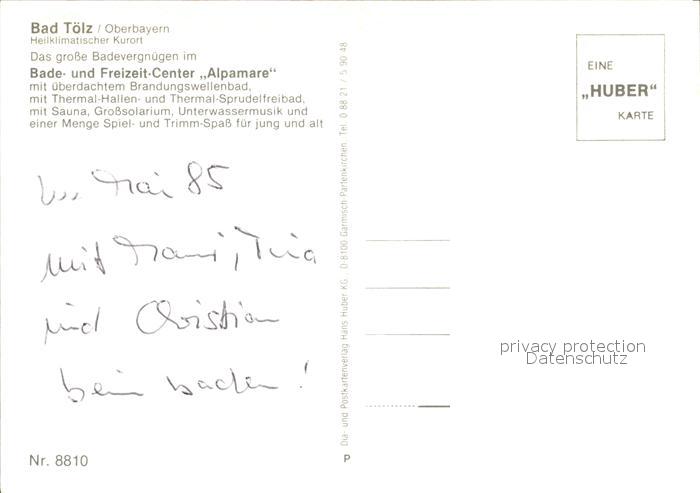 Bad Tölz / Oberbayern
Heilklimatischer Kurort
Das große Badevergnügen im
Bade- und Freizeit-Center „Alpamare“
mit überdachtem Brandungswellenbad,
mit Thermal-Hallen- und Thermal-Sprudelfreibad,
mit Sauna, Großsolarium, Unterwassermusik und
einer Menge Spiel- und Trimm-Spaß für jung und alt
Mai 85
mit Mami, Tina
und Christian
beim baden!
Nr. 8810
Dia- und Postkartenverlag Hans Huber KG., D-8100 Garmisch-Partenkirchen, Tel. 0 88 21 / 5 90 48
P
EINE
„HUBER“
KARTE
privacy protection
Datenschutz